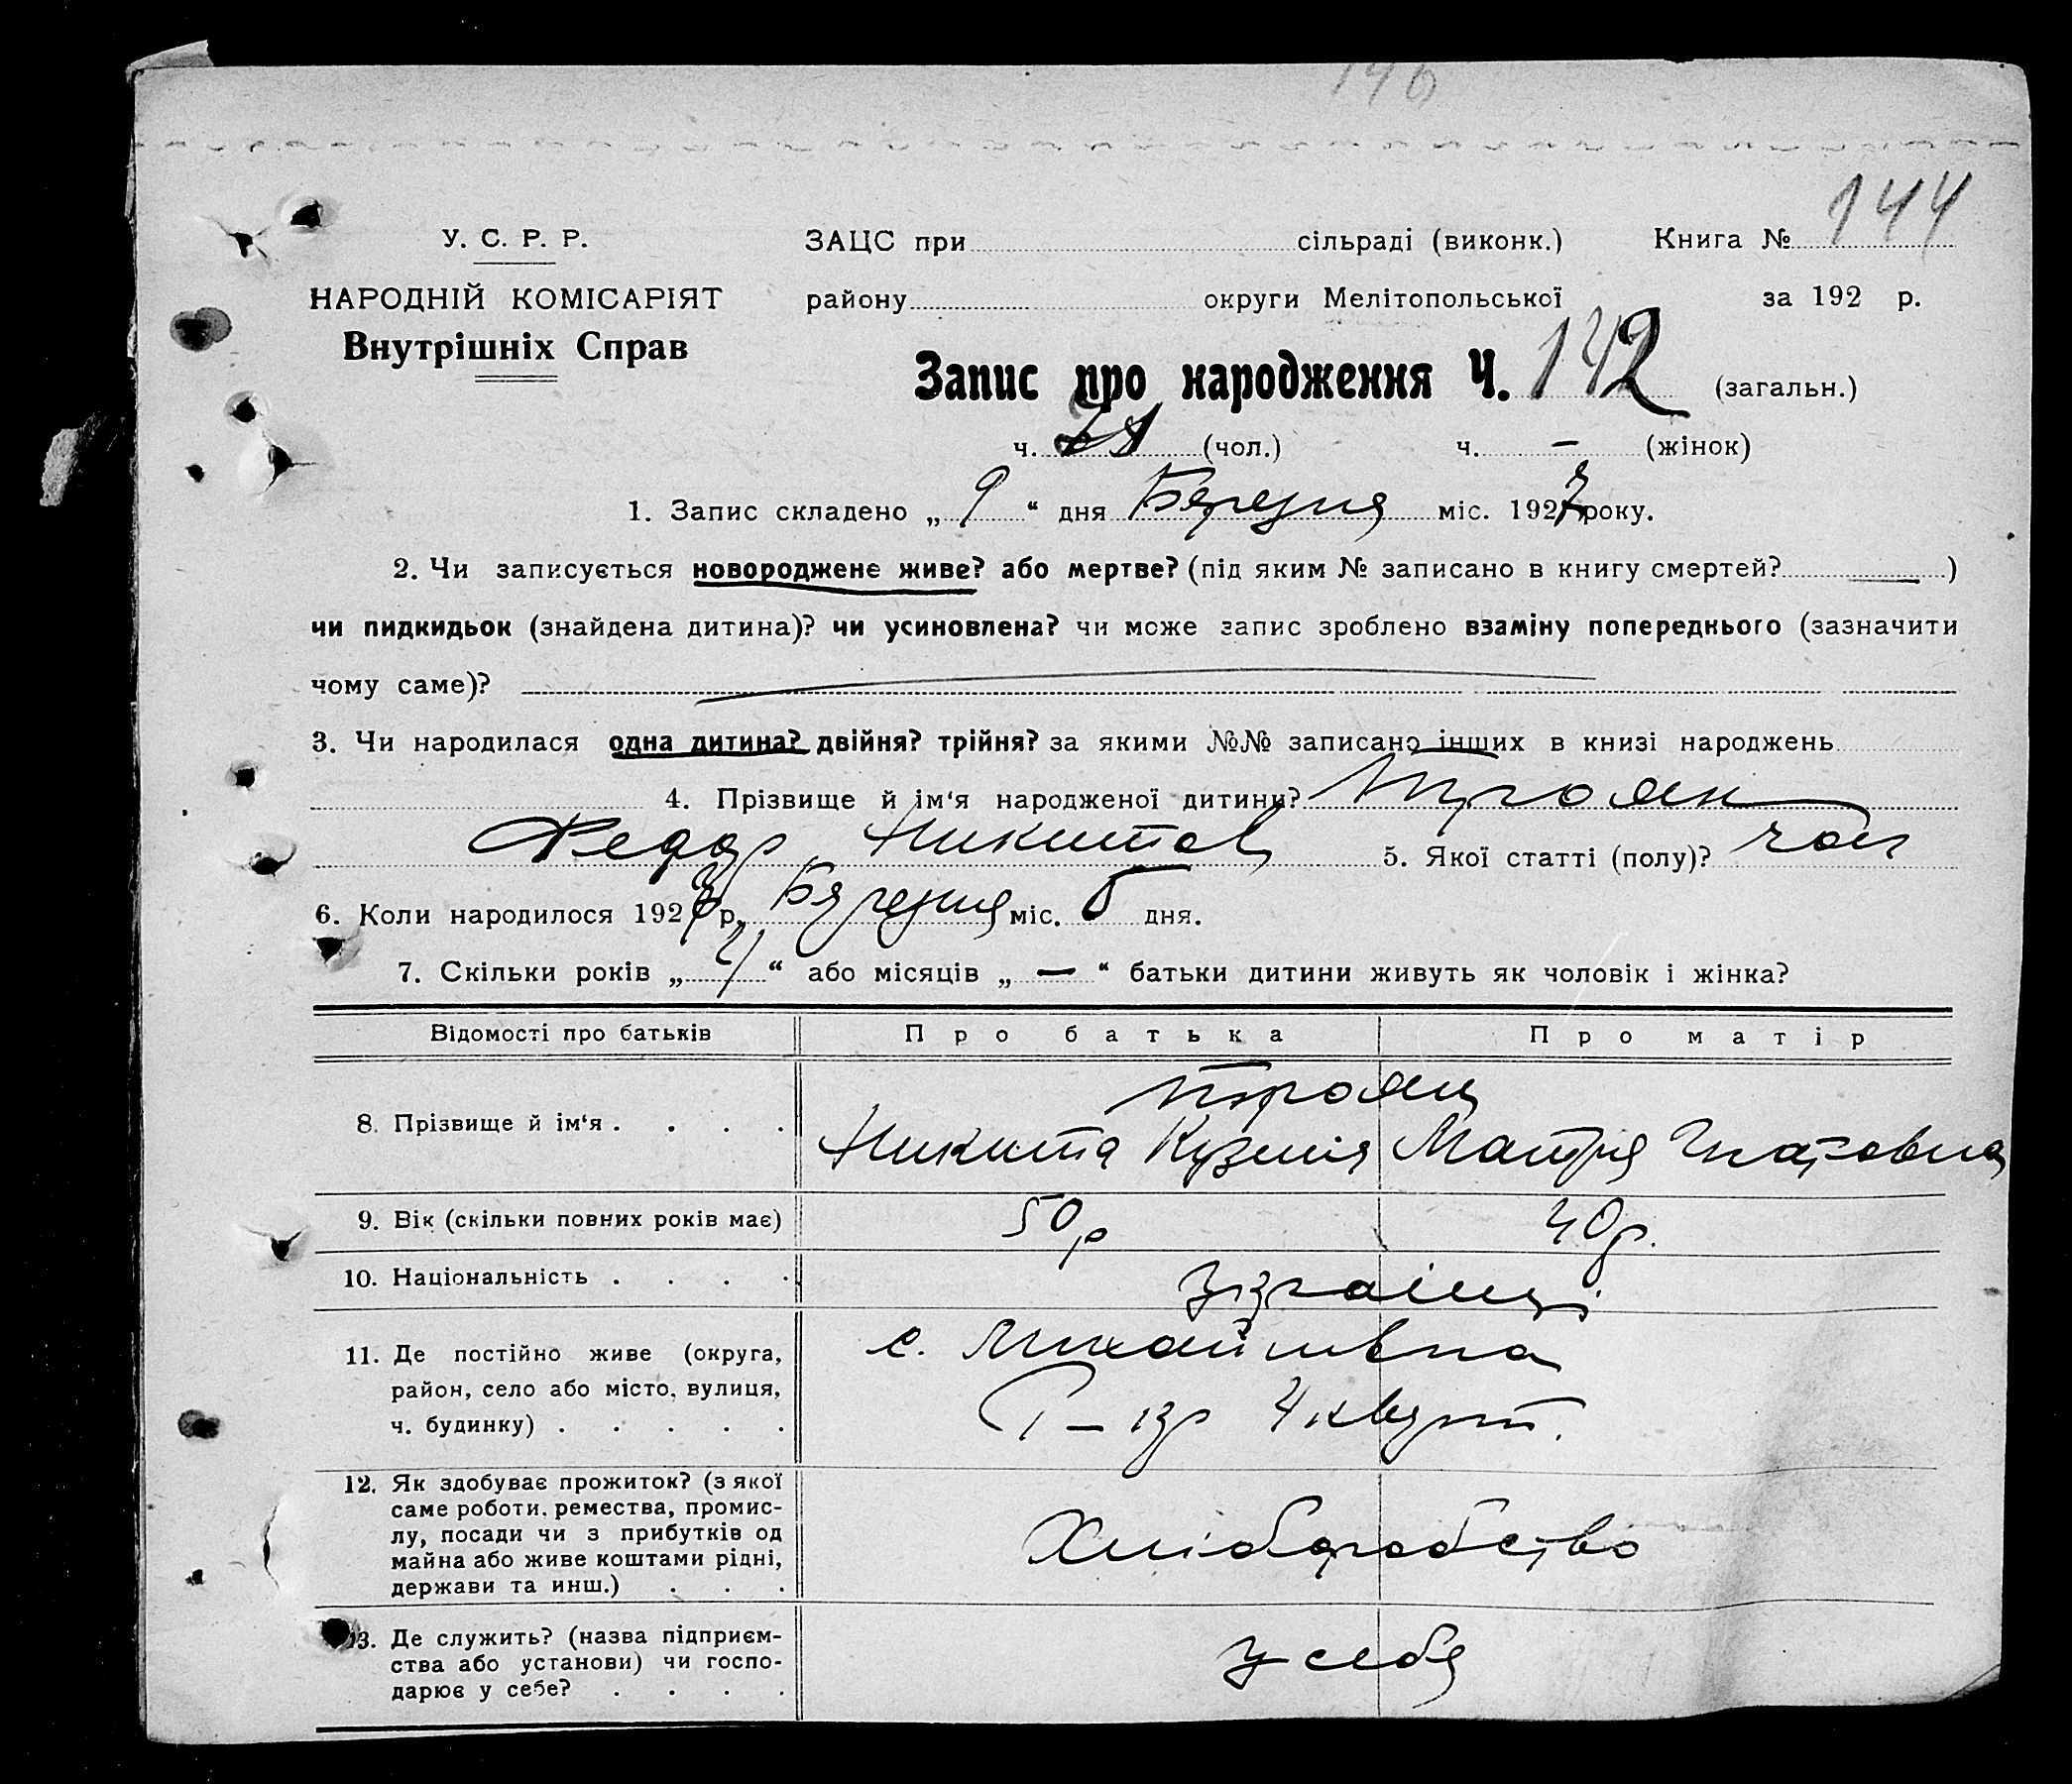 146
144
У. С. Р. Р.
НАРОДНІЙ КОМІСАРІЯТ
Внутрішніх Справ
ЗАЦС при сільраді (виконк.) Книга №
району округи Мелітопольської за 192 р.
Запис про народження Ч. 142 (загальн.)
ч. (чол.) ч. — (жінок)
1. Запис складено „ 9 “ дня Березня міс. 1927 року.
2. Чи записується новороджене живе? або мертве? (під яким № записано в книгу смертей? — )
чи пидкидьок (знайдена дитина)? чи усиновлена? чи може запис зроблено взаміну попереднього (зазначити
чому саме)?
3. Чи народилася одна дитина? двійня? трійня? за якими №№ записано інших в книзі народжень
4. Прізвище й ім‘я народженої дитини? Троян
Федор Никитов 5. Якої статті (полу)? чол
6. Коли народилося 1927 р. Березня міс. 5 дня.
7. Скільки років „ “ або місяців „ — “ батьки дитини живуть як чоловік і жінка?
Відомості про батьків Про батька Про матір
Троян
8. Прізвище й ім‘я . . . . Никита Кузмів Мотря Гнатовна
9. Вік (скільки повних років має) 50 р 40 р.
10. Національність . . . . Українці
11. Де постійно живе (округа, с. Михайлівка
район, село або місто, вулиця,
ч. будинку) . . . . . 4 кварт.
12. Як здобуває прожиток? (з якої
саме роботи, ремества, промис-
лу, посади чи з прибутків од Хліборобство
майна або живе коштами рідні,
держави та инш.) . . .
13. Де служить? (назва підприєм-
ства або установи) чи госпо- У себя
дарює у себе? . . . .